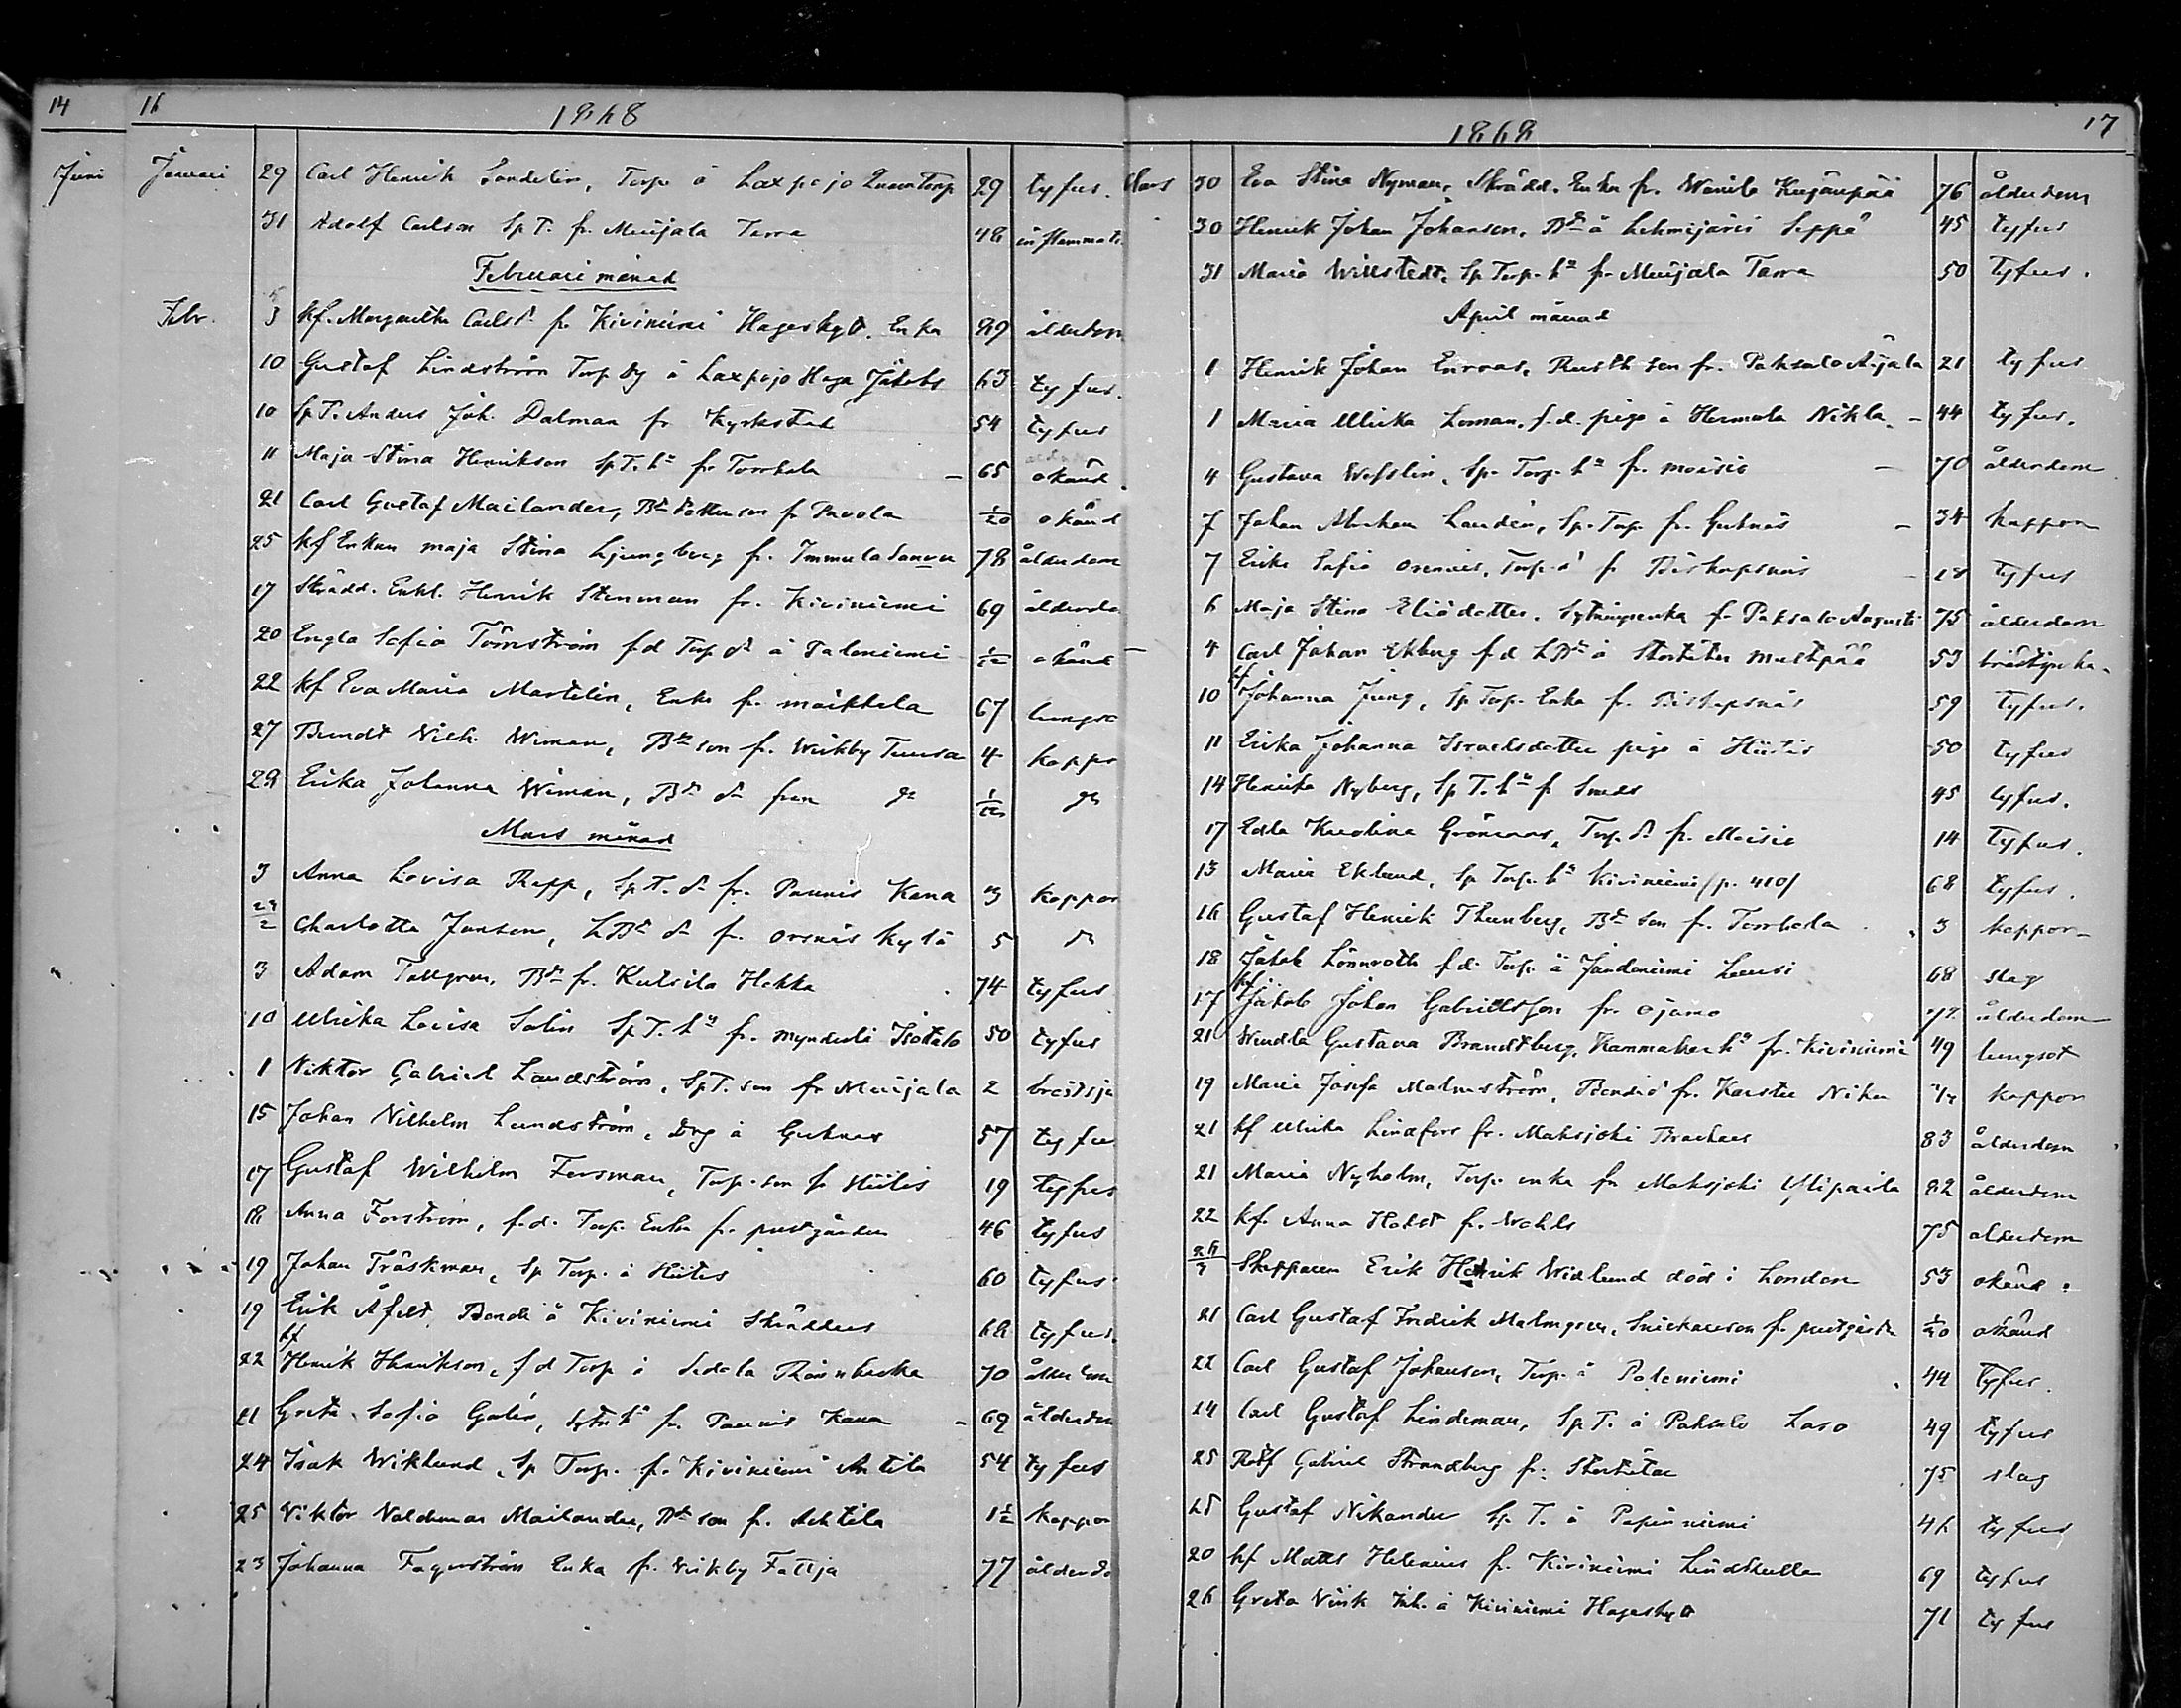 14
Juni
16
1868
Januari 29 Carl Henrik Sandelin, Torp. å Laxpojo 29 tyfus.
31 Adolf Carlson Sp T. fr. Muijala Tarra 48 inflammati
Februari månad
Febr. 3 kf. Margaretha Carlsd. fr. Kiviniemi Hagerhyt. Enka 89 ålderdom
10 Gustaf Lindström Torp Dg å Laxpojo Haga Jakobs 63 tyfus.
10 Sp T. Anders Joh. Dalman fr Kyrkstad 54 tyfus
11 Maja Stina Henrikson Sp T. h fr. Torrhola — 65 okänd
21 Carl Gustaf Mailander, Bd dotterson fr Pavola 1/20 okänd
25 kf Enkan Maja Stina Ljungberg fr. Immula 78 ålderdom
17 Skrädd. Enkl. Henrik Stenman fr. Kiviniemi 69 ålderdo
20 Engla Sofia Törnström f d Torp dr å Paloniemi 1/12 okänd
22 kf Eva Maria Martelin, Enka fr. Maikkala 67 lungso
27 Berndt Vilh. Wiman, Bd son fr. Wirkby Tuusa 4 koppo
28 Erika Johanna Wiman, Bd dr från do 1/12 do
Mars månad
3 Anna Lovisa Rapp, Sp T. dr fr. Paunis Kana 3 koppor
29/2 Charlotta Janson, L Bd dr fr. Orsnäs Kylä 5 do
3 Adam Tallgren, Bd fr. Kutsila Hekka 74 tyfus
10 Ulrika Lovisa Salin Sp T. h fr. Mynderlä Isotalo 50 tyfus
1 Viktor Gabriel Landström, Sp T. son fr Muijala 2 bröstsju
15 Johan Vilhelm Lundström, Drg å Gutnas 57 tyfu
17 Gustaf Wilhelm Forsman, Torp. son fr Hiitis 19 tyfus
18 Anna Forström, f. d. Torp. Enka fr. prestgården 46 tyfus
19 Johan Träskman, Sp Torp. å Hiitis 60 tyfus
19 Erik Åfelt Bonde å Kiviniemi Skräddars 68 tyfus.
22 kf Henrik Henrikson, f d Torp å Sedola 70 ålderdom
21 Greta Sofia Galin, Sytn h fr. Paunis Kana — 69 ålderdom
24 Isak Wiklund, Sp Torp. fr. Kiviniemi Antila 54 tyfus
25 Viktor Valdemar Mailander, Bd son fr. Ahtila 1 1/2 koppor
23 Johanna Fagerström Enka fr. Virkby Fattja 77 ålderdo
1868 17
Mars 30 Eva Stina Nyman, Skrädd. Enka fr. Wanila Kujanpää 76 ålderdom
30 Henrik Johan Johanson, Bd å Lehmijärvi Seppä 45 tyfus
31 Maria Willstedt, Sp Torp. h fr. Muijala Tarra 50 tyfus.
April månad
1 Henrik Johan Enroos, Rusth son fr. Paksalo Äijälä 21 tyfus
1 Maria Ulrika Loman, f. d. piga å Hermala Nikla. — 44 tyfus.
4 Gustava Wesslin, Sp. Torp. h fr. Moisio — 70 ålderdom
7 Johan Abraham Landén, Sp. Torp. fr. Gutnäs — 34 koppor
7 Erika Sofia Orenius, Torp. d fr Biskopsnäs — 18 tyfus
6 Maja Stina Eliä dotter, Sytningsenka fr Paksalo Augusti 75 ålderdom
4 Carl Johan Ekberg f d L Bd å Stortötar Mustapää 53 bröstsjuka.
10 kf Johanna Jung, Sp Torp. Enka fr. Biskopsnäs 59 tyfus.
11 Erika Johanna Israelsdotter piga å Hiitis 50 tyfus
14 Henrika Nyberg, Sp T. h fr Smeds 45 tyfus.
17 Edla Karolina Grönroos, Torp. dr fr. Moisio 14 tyfus.
13 Maria Eklund, Sp Torp. h Kiviniemi /p. 410/ 68 tyfus.
16 Gustaf Henrik Thunberg, Bd son fr. Torrhola 3 koppor
18 Jakob Lönnroth f. d. Torp. å Jandoniemi Lausi 68 slag
17 kf Jakob Johan Gabrielsson fr. Ojamo 72 ålderdom
21 Wendla Gustava Brandtberg, Kammaker h fr. Kiviniemi 49 lungsot
19 Maria Josefa Malmström, Bonded fr. Karstu Niku koppor
21 kf Ulrika Lindfors fr. Maksjoki Brachers 83 ålderdom
21 Maria Nyholm, Torp. enka fr Maksjoki Ylipaila 82 ålderdom
22 kf. Anna Holst fr. Wahls 75 ålderdom
26/3 Skepparen Erik Henrik Widlund död i London 53 okänd.
21 Carl Gustaf Fredrik Malmgren, Snickareson fr. prestgårdn 1/20 okänd
22 Carl Gustaf Johanson, Torp. å Paloniemi 44 tyfus.
24 Carl Gustaf Lindeman, Sp T. å Paksalo Laso 49 tyfus
25 Gabriel Strandberg fr. Stortötar 75 slag
25 Gustaf Nikander Sp. T. å Papinniemi 46 tyfus
20 kf Matts Helenius fr. Kiviniemi Lindkulla 69 tyfus
26 Greta Viik Inh. å Kiviniemi Hagerhyt 71 tyfus